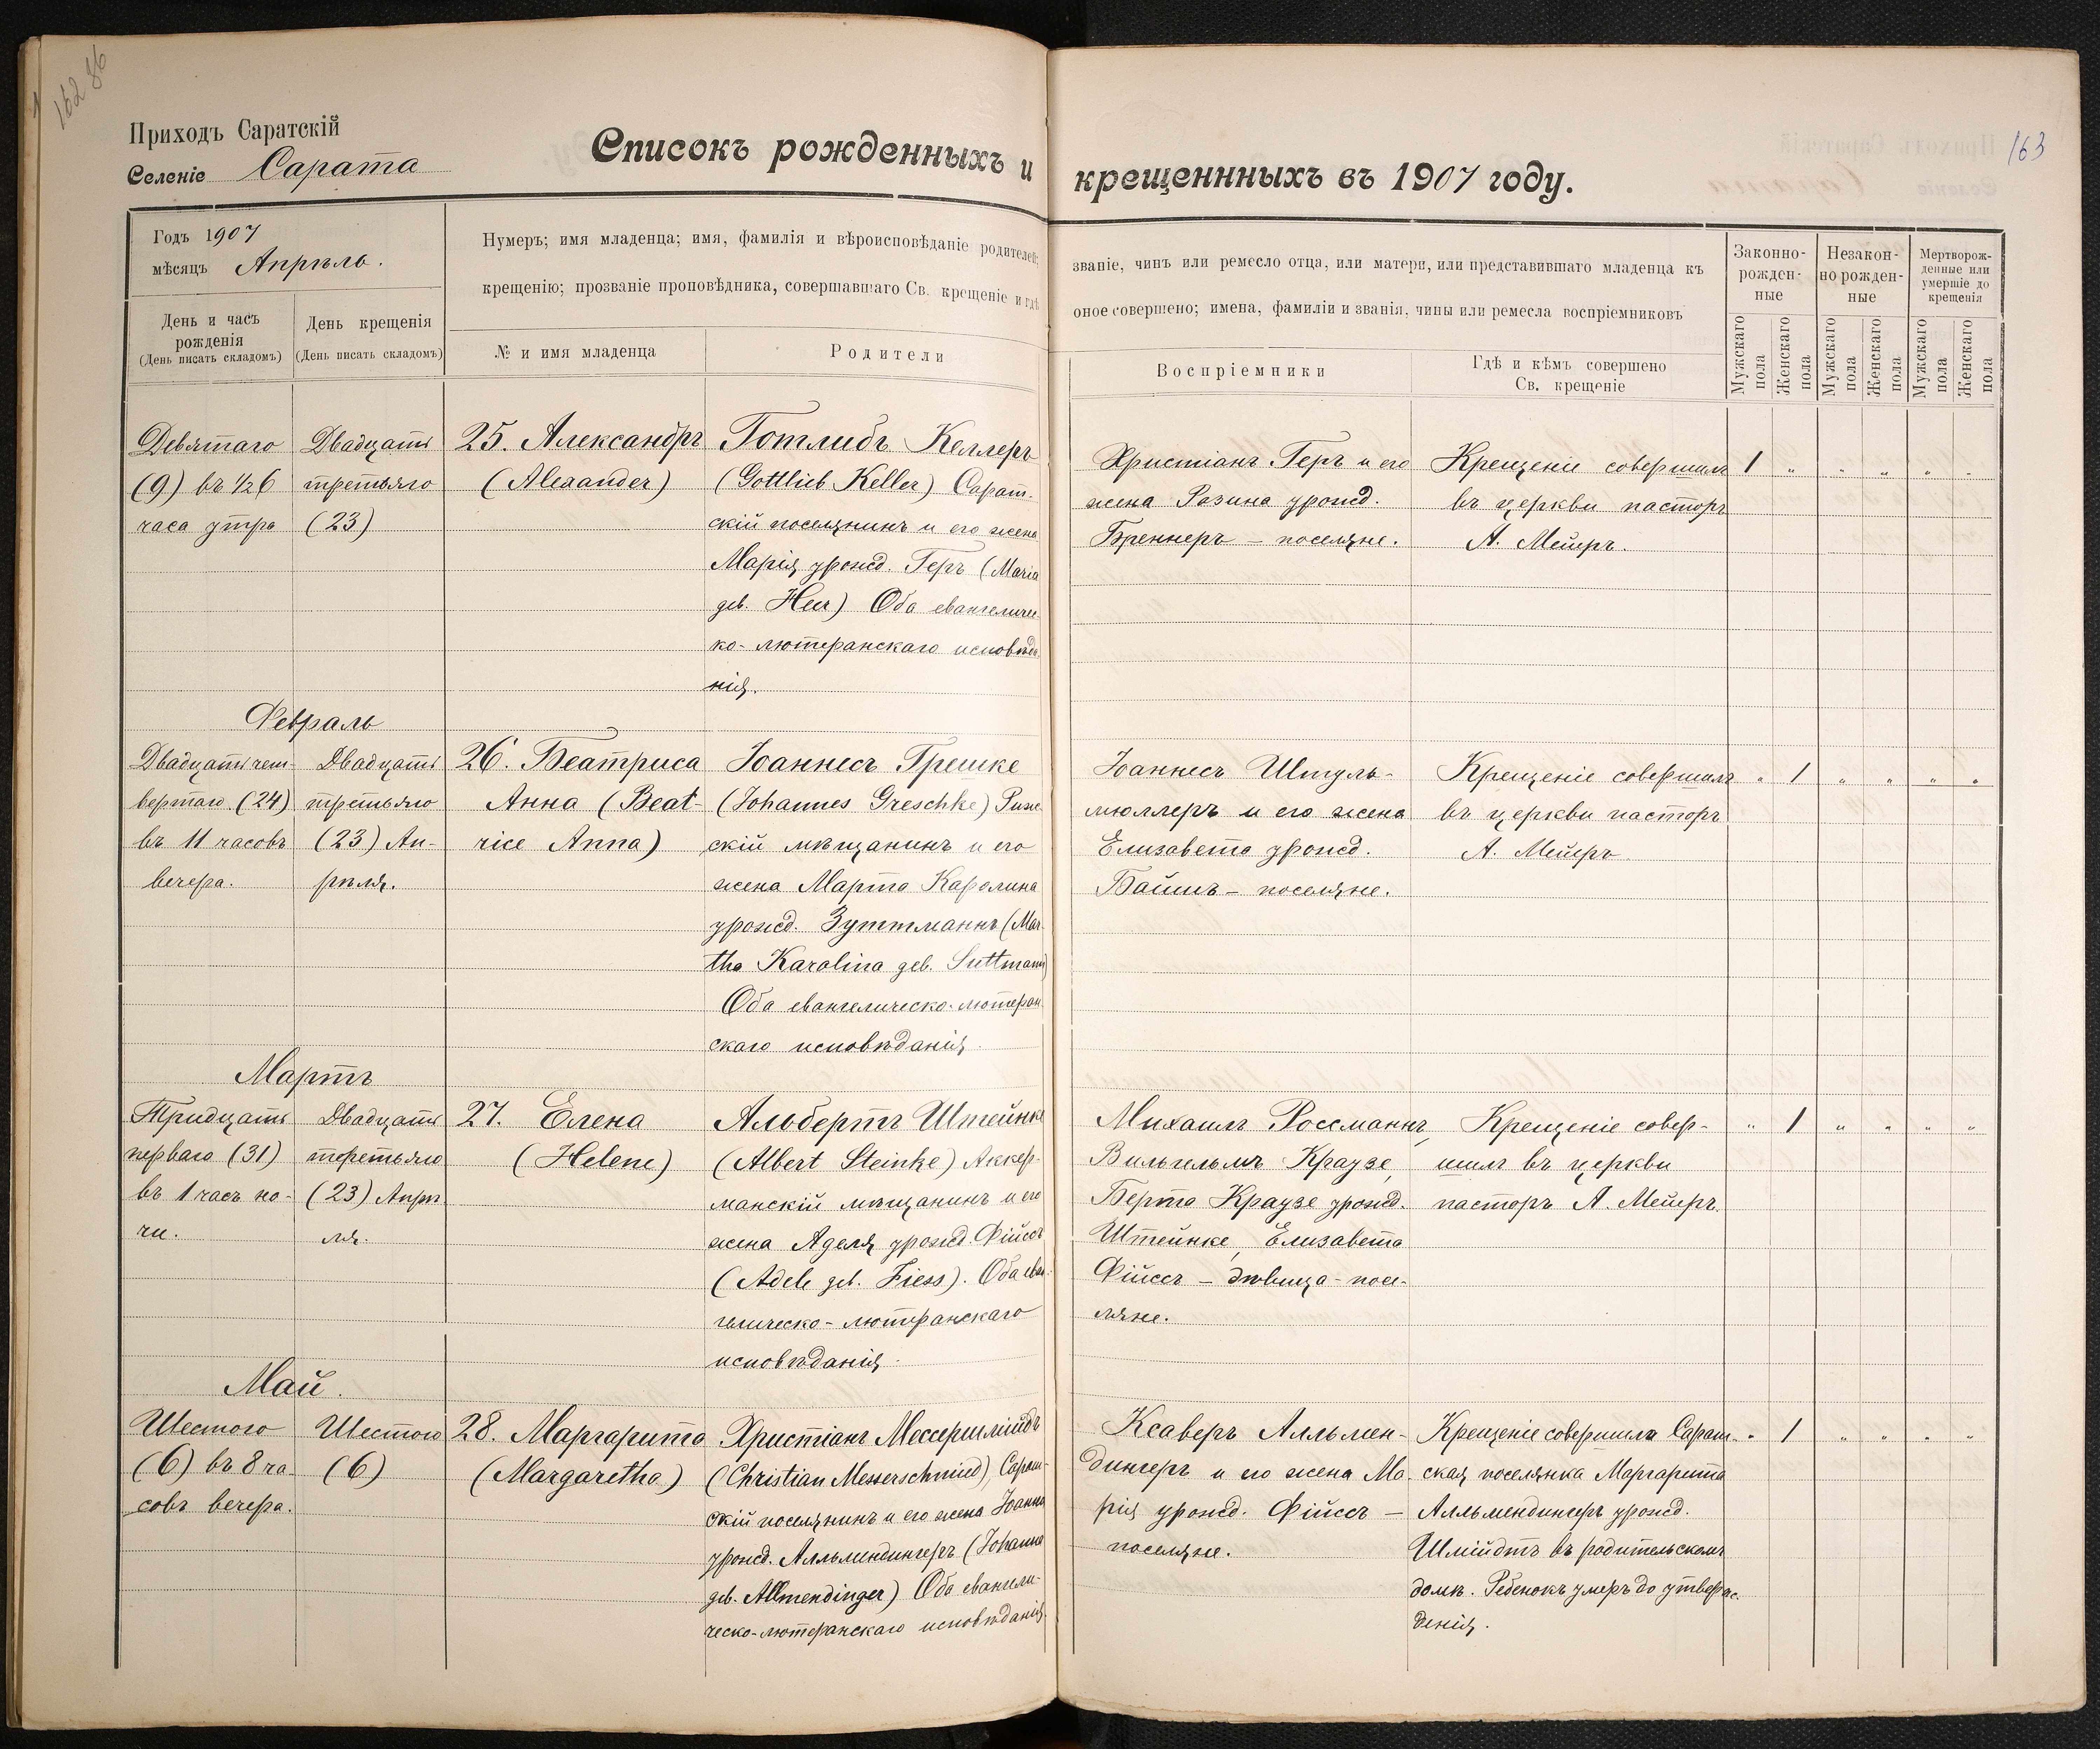 162 86
163
Приходъ Саратскій
Селеніе Сарата
Списокъ рожденныхъ и крещеннныхъ въ 1907 году.
Годъ 1907
мѣсяцъ Апрѣль.
Нумеръ; имя младенца; имя, фамилія и вѣроисповѣданіе родителей;
крещенію; прозваніе проповѣдника, совершавшаго Св. крещеніе и гдѣ
званіе, чинъ или ремесло отца, или матери, или представившаго младенца къ
оное совершено; имена, фамиліи и званія, чины или ремесла воспріемниковъ
День и часъ
рожденія
(День писать складомъ)
День крещенія
(День писать складомъ)
№ и имя младенца
Родители
Воспріемники
Гдѣ и кѣмъ совершено
Св. крещеніе
Законно-
рожден-
ные
Незакон-
но рожден-
ные
Мертворож-
денные или
умершіе до
крещенія
Мужскаго пола
Женскаго пола
Мужскаго пола
Женскаго пола
Мужскаго пола
Женскаго пола
Девятаго
(9) въ ½6
часа утра
Двадцать
третьяго
(23)
25. Александръ
(Alexander)
Готлибъ Келлеръ
(Gottlieb Keller) Сарат-
скій поселянинъ и его жена
Марія урожд. Геръ (Maria
geb. Herr) Оба евангеличес-
ко-лютеранскаго исповѣда-
нія.
Христіанъ Геръ и его
жена Розина урожд.
Бреннеръ – поселяне.
Крещеніе совершилъ
въ церкви пасторъ
А. Мейеръ.
1 „ „ „ „ „
Февраль
Двадцать чет-
вертаго (24)
въ 11 часовъ
вечера.
Двадцать
третьяго
(23) Ап-
рѣля.
26. Беатриса
Анна (Beat-
rice Anna)
Іоаннесъ Грешке
(Johannes Greschke) Риж-
скій мѣщанинъ и его
жена Марта Каролина
урожд. Зуттманнъ (Mar-
tha Karolina geb. Suttmann)
Оба евангелическо-лютеран-
скаго исповѣданія.
Іоаннесъ Штуль-
мюллеръ и его жена
Елизавета урожд.
Байшъ – поселяне.
Крещеніе совершилъ
въ церкви пасторъ
А. Мейеръ
„ 1 „ „ „ „
Мартъ
Тридцать
перваго (31)
въ 1 часъ но-
чи.
Двадцать
третьяго
(23) Апрѣ-
ля.
27. Елена
(Helene)
Альбертъ Штейнке
(Albert Steinke) Аккер-
манскій мѣщанинъ и его
жена Аделя урожд. Фійссъ
(Adele geb. Fiess). Оба еван-
гелическо-лютеранскаго
исповѣданія.
Михаилъ Россманнъ,
Вильгельмъ Краузе,
Берта Краузе урожд.
Штейнке, Елизавета
Фійссъ – дѣвица – посе-
ляне.
Крещеніе совер-
шилъ въ церкви
пасторъ А. Мейеръ.
„ 1 „ „ „ „
Май.
Шестого
(6) въ 8 ча-
совъ вечера.
Шестого
(6)
28. Маргарита
(Margaretha)
Христіанъ Мессершмидъ
(Christian Messerschmied), Сарат-
скій поселянинъ и его жена Іоанна
урожд. Алльмендингеръ (Johanna
geb. Allmendinger) Оба евангели-
ческо-лютеранскаго исповѣданія.
Ксаверъ Алльмен-
дингеръ и его жена Ма-
рія урожд. Фійссъ –
поселяне.
Крещеніе совершила Сарат-
ская поселянка Маргарита
Алльмендингеръ урожд.
Шмійдтъ въ родительскомъ
домѣ. Ребенокъ умеръ до утверж-
денія.
„ 1 „ „ „ „